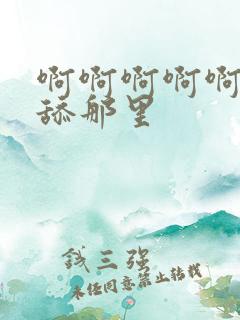 啊啊啊啊啊
舔那里
钱三强
未经同意禁止转载